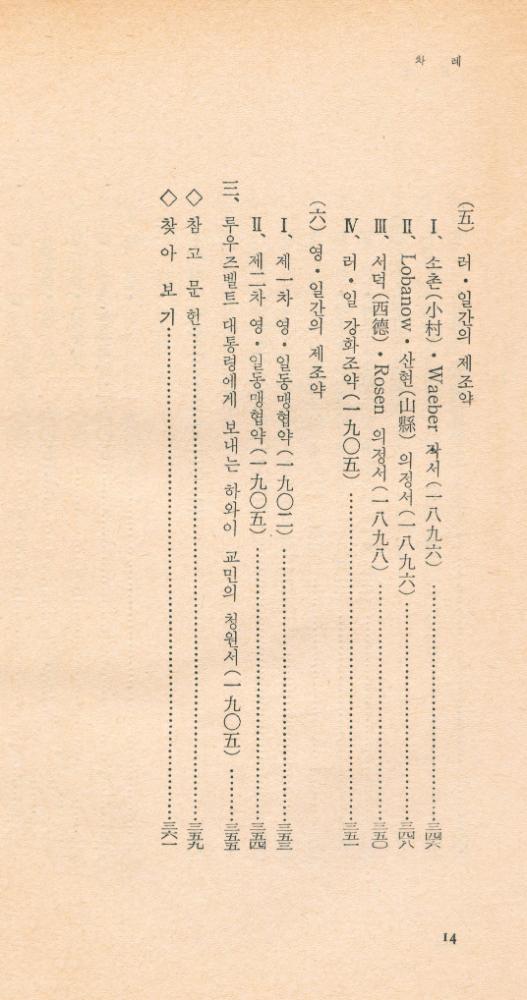 차 례
(五) 러·일간의 제조약
Ⅰ、소촌(小村)·Waeber 각서(一八九六)……三四六
Ⅱ、Lobanow·산현(山縣) 의정서(一八九六)……三四八
Ⅲ、서덕(西德)·Rosen 의정서(一八九八)……三五〇
Ⅳ、러·일 강화조약(一九〇五)……三五一
(六) 영·일간의 제조약
Ⅰ、제一차 영·일동맹협약(一九〇二)……三五三
Ⅱ、제二차 영·일동맹협약(一九〇五)……三五四
三、루우즈벨트 대통령에게 보내는 하와이 교민의 청원서(一九〇五)……三五五
◇ 참 고 문 헌……三五九
◇ 찾 아 보 기……三六一
14